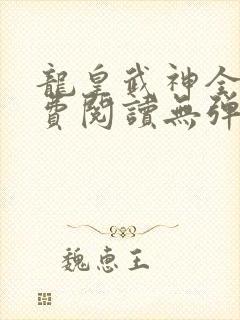 龍皇武神全
費閱讀無彈
魏惠王